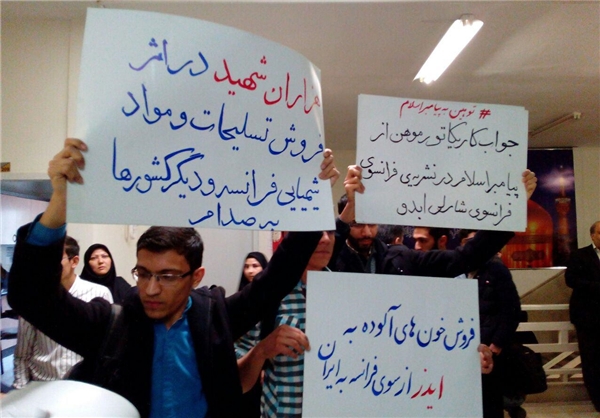 هزاران شهید در اثر
فروش تسلیحات و مواد
شیمیایی فرانسه و دیگر کشورها
به صدام
# توهین_به_پیامبر_اسلام
جواب کاریکاتور موهن از
پیامبر اسلام در نشریه ی فرانسوی
فرانسوی شارلی ابدو
فروش خون های آلوده به
ایدز از سوی فرانسه به ایران